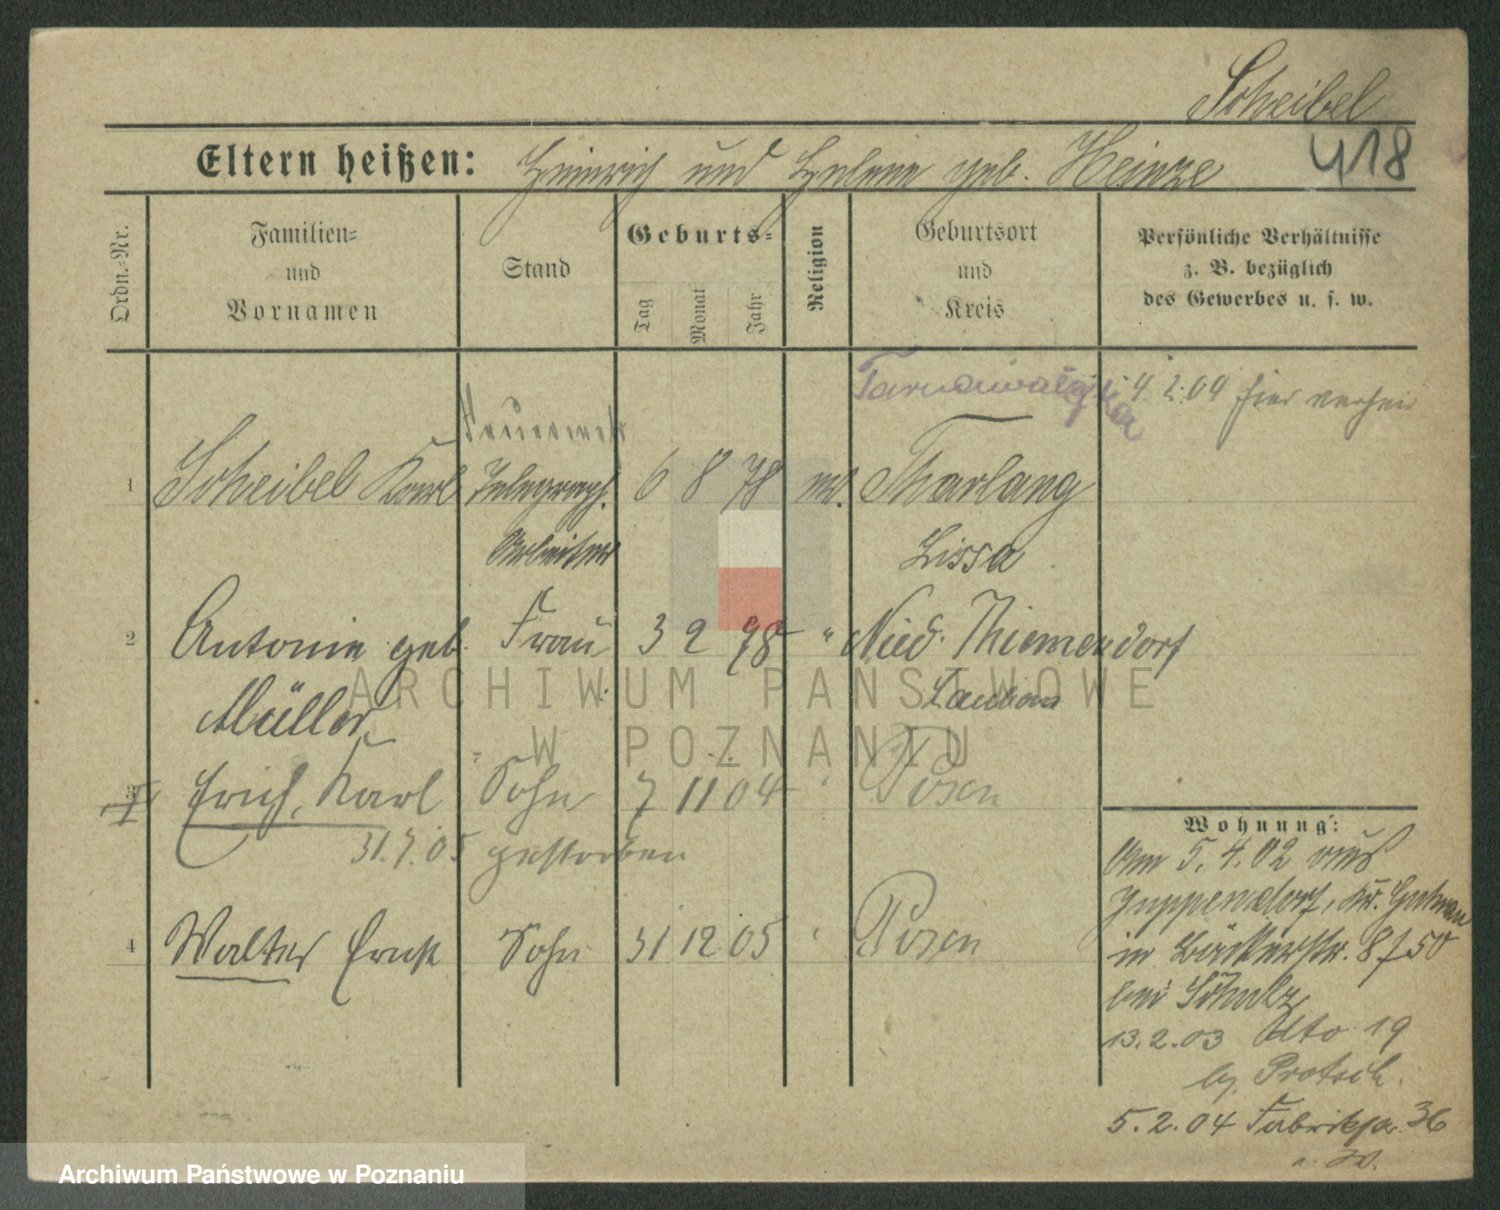 Scheibel
418
Eltern heißen: Heinrich und Helene geb. Heinze
Ordn.-Nr.
Familien-
und
Vornamen
Stand
Geburts-
Tag
Monat
Jahr
Religion
Geburtsort
und
Kreis
Persönliche Verhältnisse
z. B. bezüglich
des Gewerbes u. s. w.
4.2.04 hier verheir
1 Scheibel Karl Telegraph. 6 8 78 Tharlang
Arbeiter Lissa
2 Antonie geb. Frau 3 2 78 " Nied. Thiemendorf
Müller Lauban
3 Erich, Karl Sohn 7 11 04 " Posen
31.7.05 gestorben
4 Walter Ernst Sohn 31 12 05 " Posen
Wohnung:
Am 5.4.02 aus
in Bäckerstr. 8
bei Schulz
13.2.03 dto 19
5.2.04 Fabrikstr. 36
ARCHIWUM PAŃSTWOWE
W POZNANIU
Archiwum Państwowe w Poznaniu